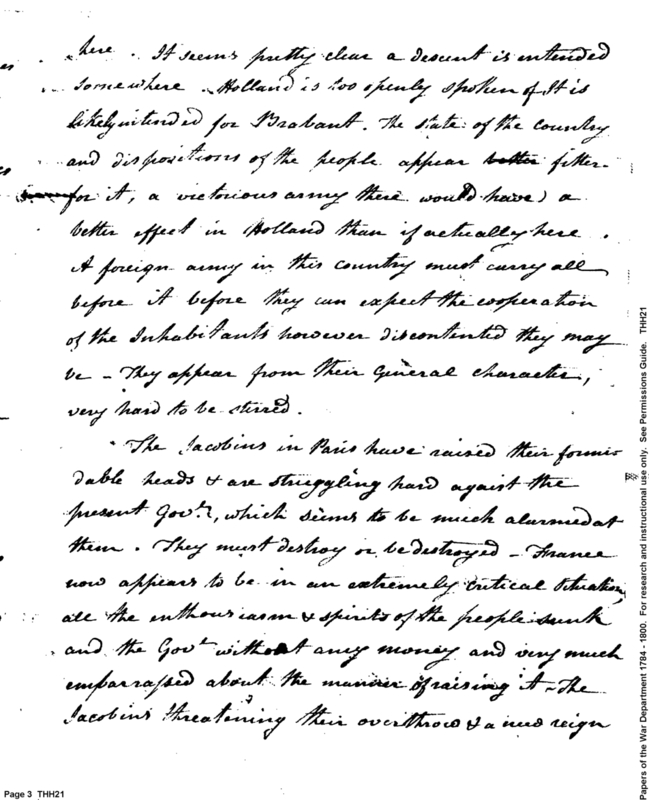 here. It seems pretty clear a descent is intended
somewhere. Holland is too openly spoken of It is
likely intended for Brabant. The state of the country
and dispositions of the people appear better fitter
for it, a victorious army there would have a
better effect in Holland than if actually here.
A foreign army in this country must carry all
before it before they can expect the cooperation
of the Inhabitants however discontented they may
be - They appear from their General character,
very hard to be stirred.
The Jacobins in Paris have raised their formi
dable heads & are struggling hard against the
present Govt., which seems to be much alarmed at
them. They must destroy or be destroyed - France
now appears to be in an extremely critical situation,
all the enthousiasm & spirits of the people sunk
and the Govt without any money and very much
embarrassed about the manner of raising it - The
Jacobins threatening their overthrow & a new reign
Page 3 THH21
Papers of the War Department 1784 - 1800. For research and instructional use only. See Permissions Guide. THH21